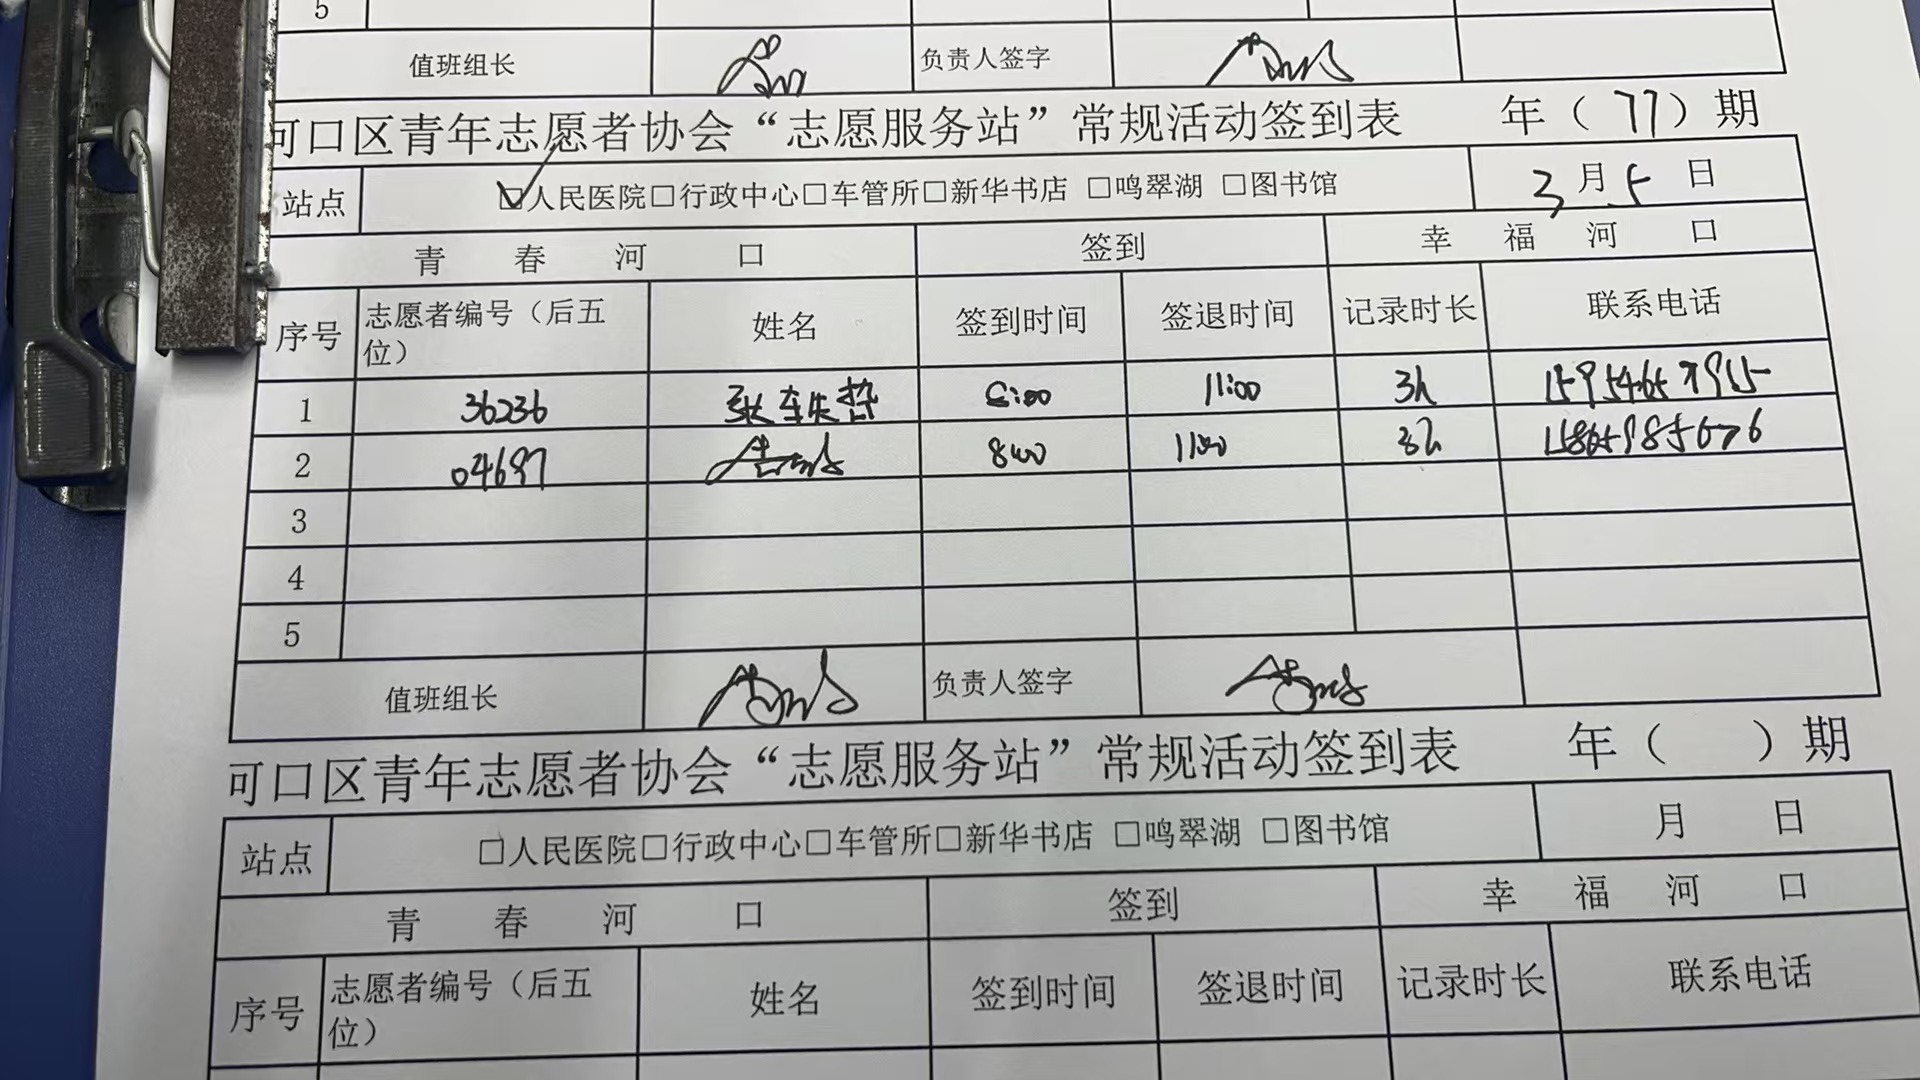 5
值班组长 负责人签字
可口区青年志愿者协会“志愿服务站”常规活动签到表 年（77）期
站点 ☑人民医院□行政中心□车管所□新华书店 □鸣翠湖 □图书馆 3月5日
青春河口 签到 幸福河口
序号 志愿者编号（后五位） 姓名 签到时间 签退时间 记录时长 联系电话
1 36236 11:00 3h
2 04697 8:00 11:00 3h
3
4
5
值班组长 负责人签字
可口区青年志愿者协会“志愿服务站”常规活动签到表 年（ ）期
站点 □人民医院□行政中心□车管所□新华书店 □鸣翠湖 □图书馆 月 日
青春河口 签到 幸福河口
序号 志愿者编号（后五位） 姓名 签到时间 签退时间 记录时长 联系电话